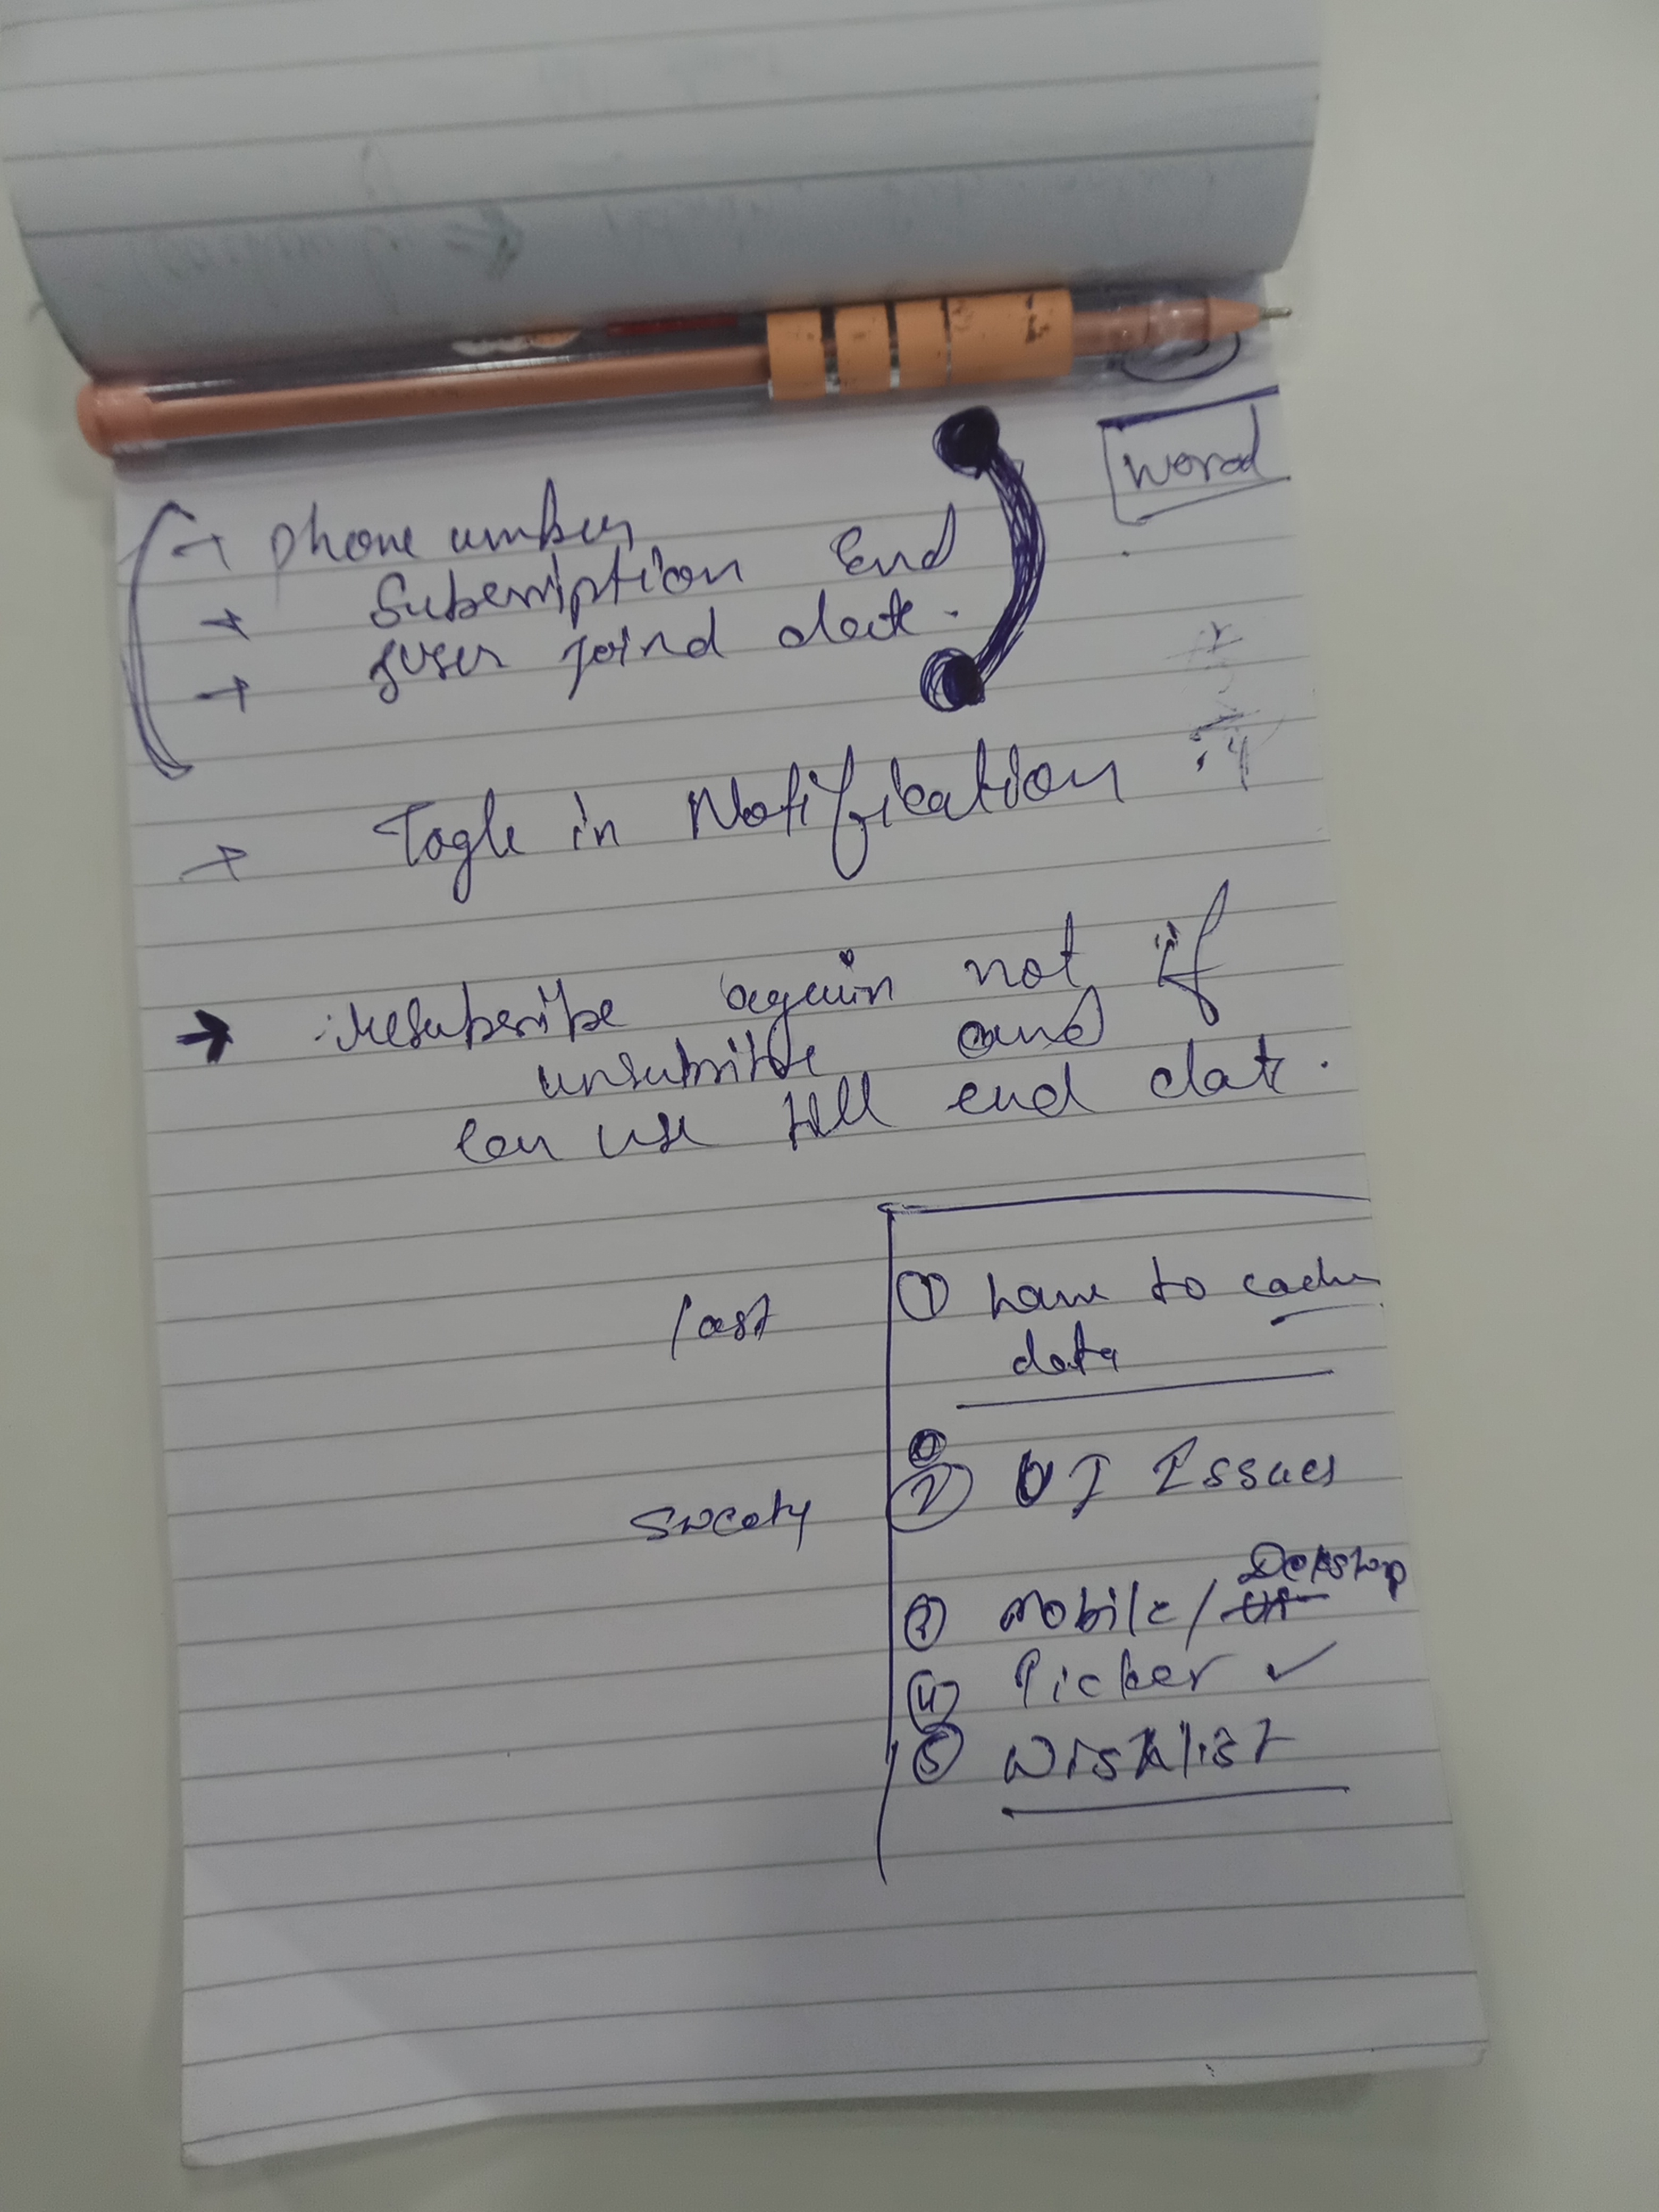 word
→ phone umber
→ Subscription End
→ user joind date.
→ Togle in Notification
→ resubscribe again not if
unsubribe and
can use till end date.
last
① have to cache
data
② UI Issues
sweety
③ Mobile/ Dekstop
④ Picker ✓
⑤ Wishlist